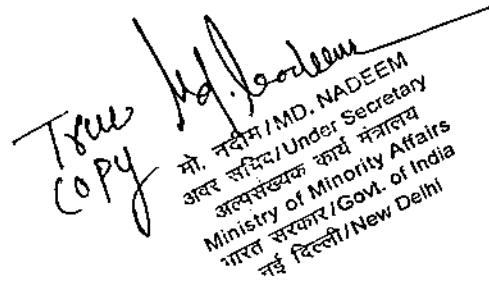 True Copy
Md. Nadeem
मो. नदीम/MD. NADEEM
अवर सचिव/Under Secretary
अल्पसंख्यक कार्य मंत्रालय
Ministry of Minority Affairs
भारत सरकार/Govt. of India
नई दिल्ली/New Delhi